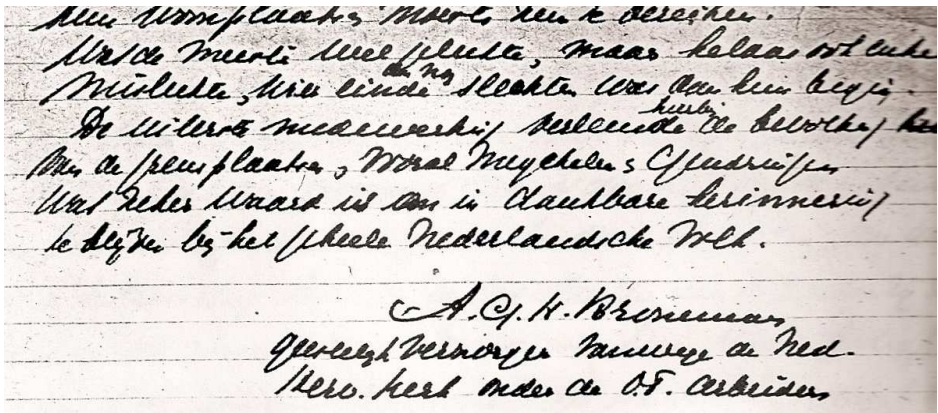 hun woonplaatsen moesten zien te bereiken.
Wat de meeste wel gelukte, maar helaas ook enkele
mislukte, wier einde dan nog slechter was dan hun begin.
De uiterste medewerking verleende hierbij de bevolking
van de grensplaatsen, vooral Megchelen & Gendringen
wat zeker waard is om in dankbare herinnering
te blijven bij het geheele Nederlandsche Volk.
A. G. H. Broneman
geestelijk verzorger vanwege de Ned.
Herv. Kerk onder de O.T. arbeiders